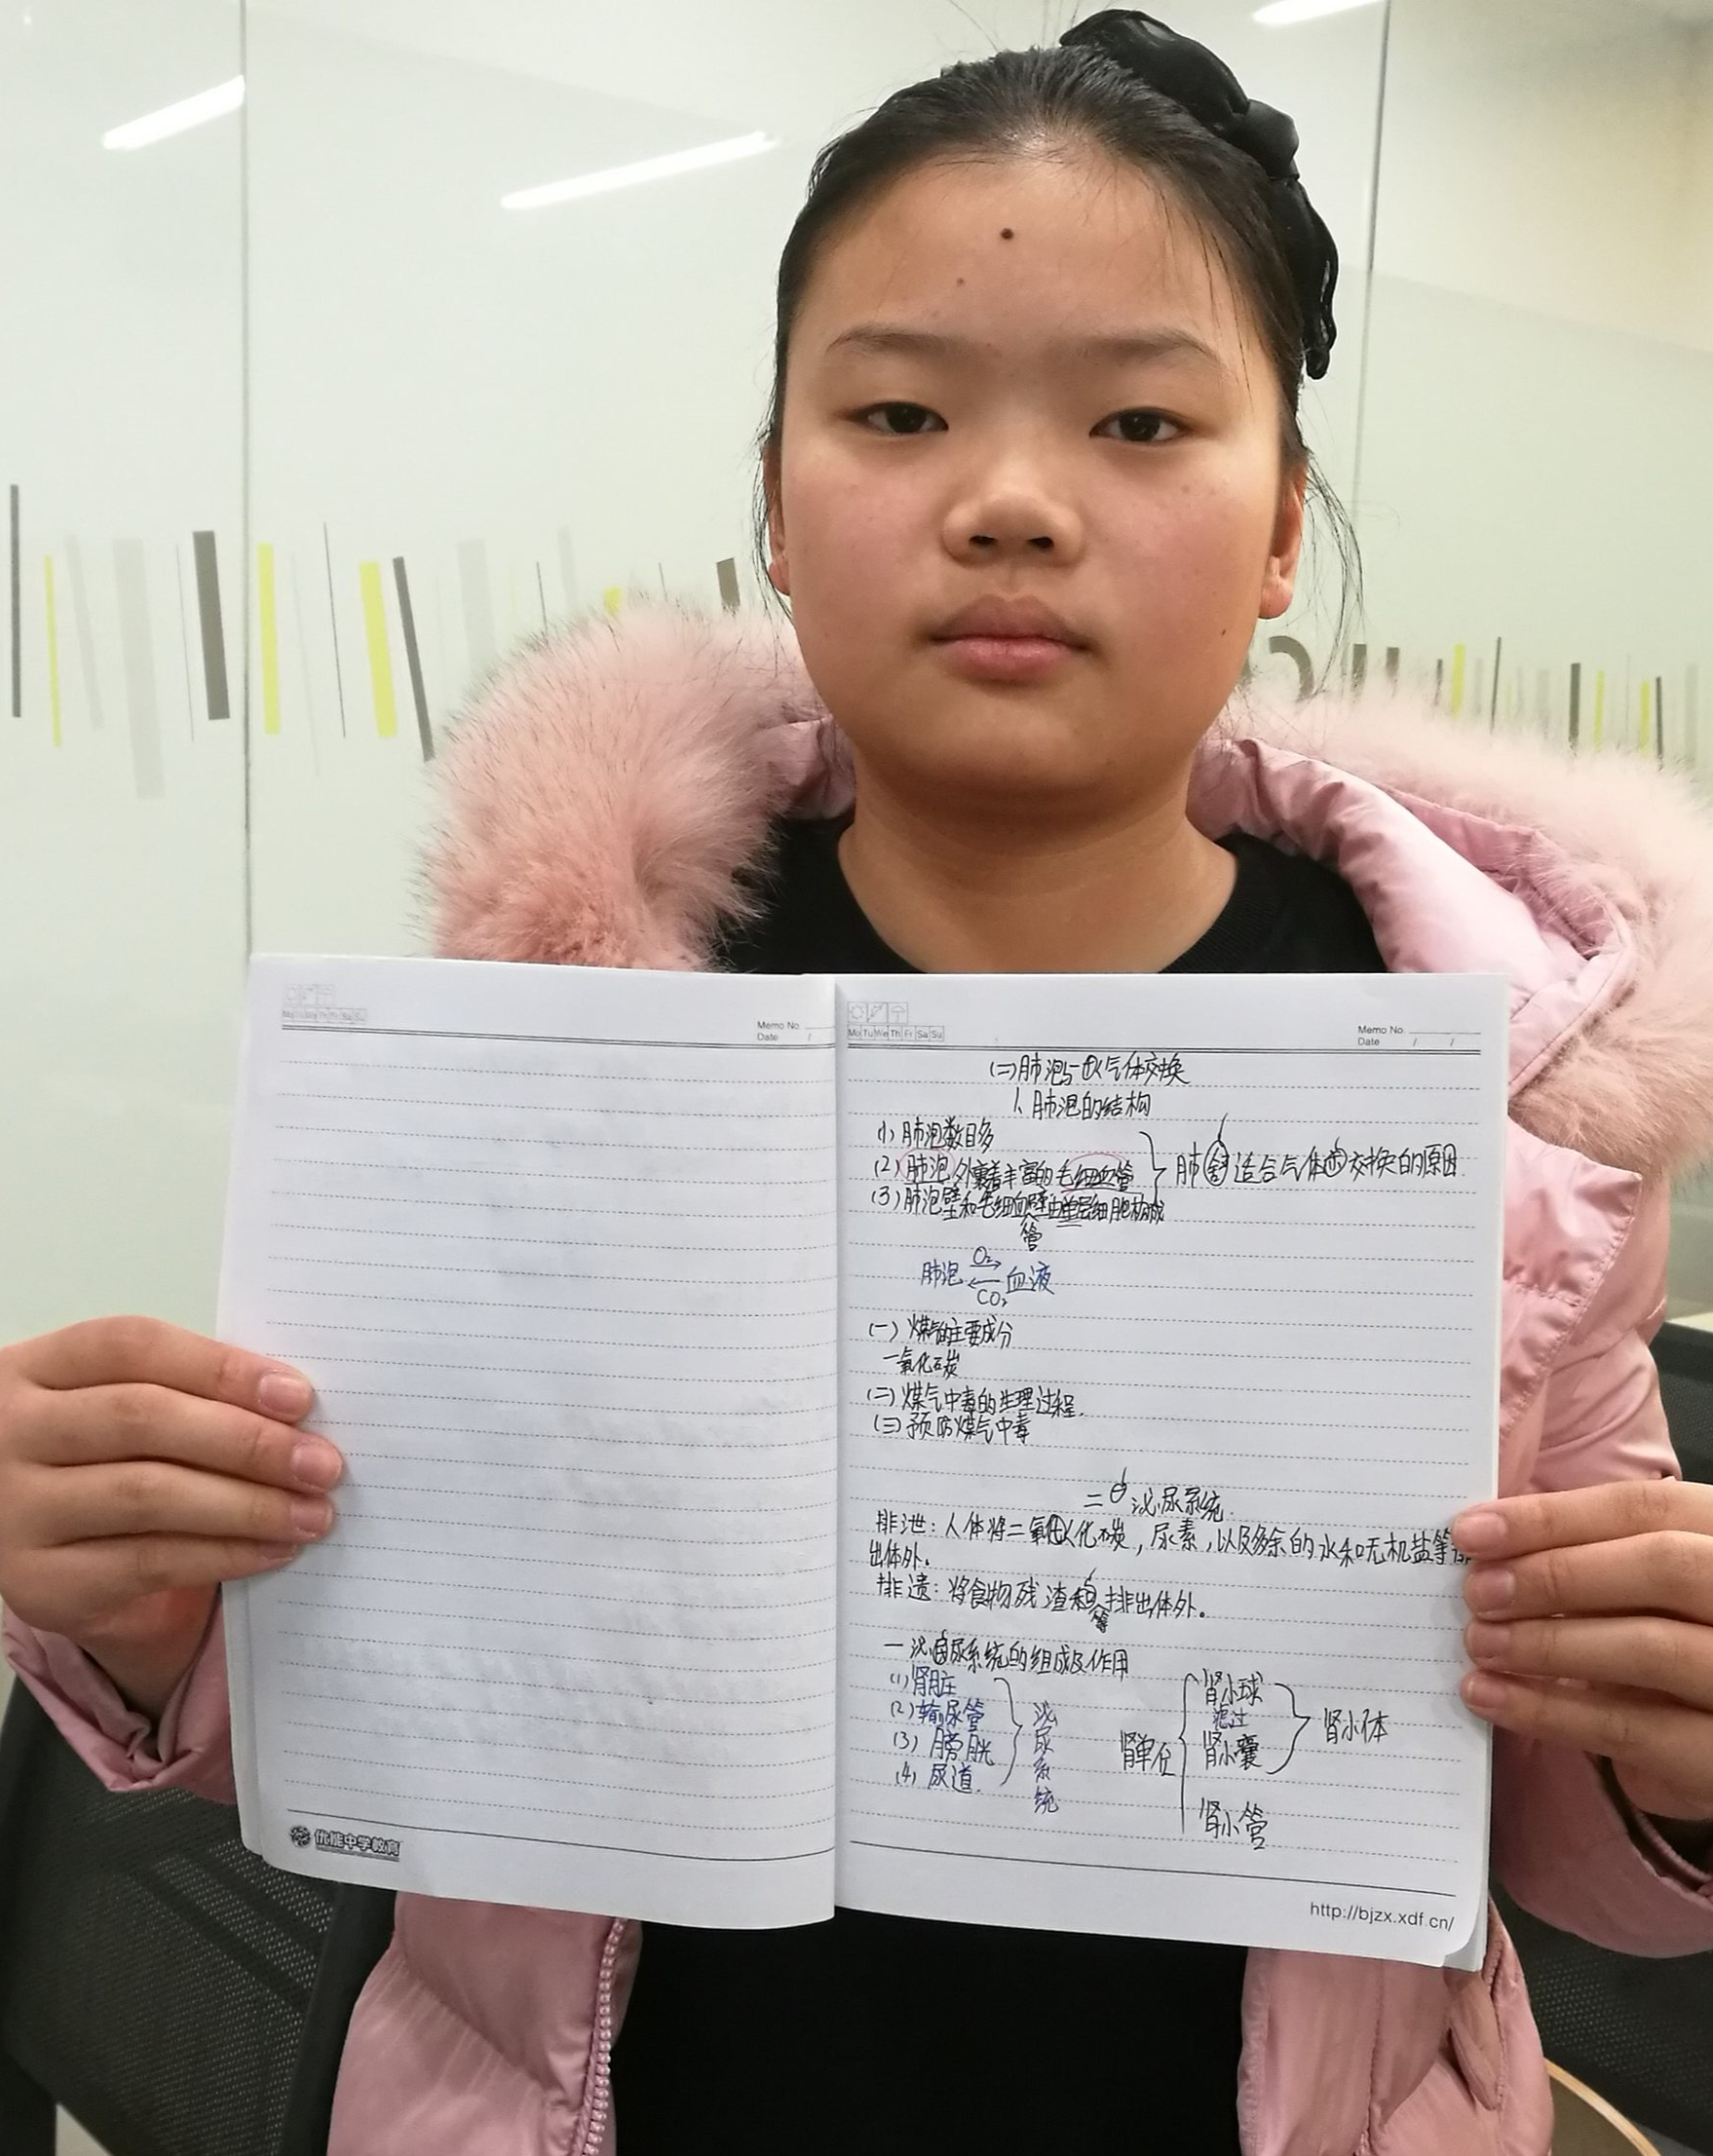 Mo Tu We Th Fr Sa Su
Memo No.
Date / 
Mo Tu We Th Fr Sa Su
Memo No.
Date / /
(二)肺泡与气体交换
1、肺泡的结构
(1)肺泡数目多
(2)肺泡外裹着丰富的毛细血管
(3)肺泡壁和毛细血管壁由单层细胞构成
肺适合气体交换的原因.
肺泡 O₂ → ← CO₂ 血液
(一)煤气的主要成分
一氧化碳
(二)煤气中毒的生理过程.
(三)预防煤气中毒
二 泌尿系统.
排泄:人体将二氧化碳,尿素,以及多余的水和无机盐等
出体外.
排遗:将食物残渣等排出体外.
一 泌尿系统的组成及作用
(1)肾脏
(2)输尿管
(3)膀胱
(4)尿道.
泌尿系统
肾单位
肾小球
滤过
肾小囊
肾小管
肾小体
优能中学教育
http://bjzx.xdf.cn/